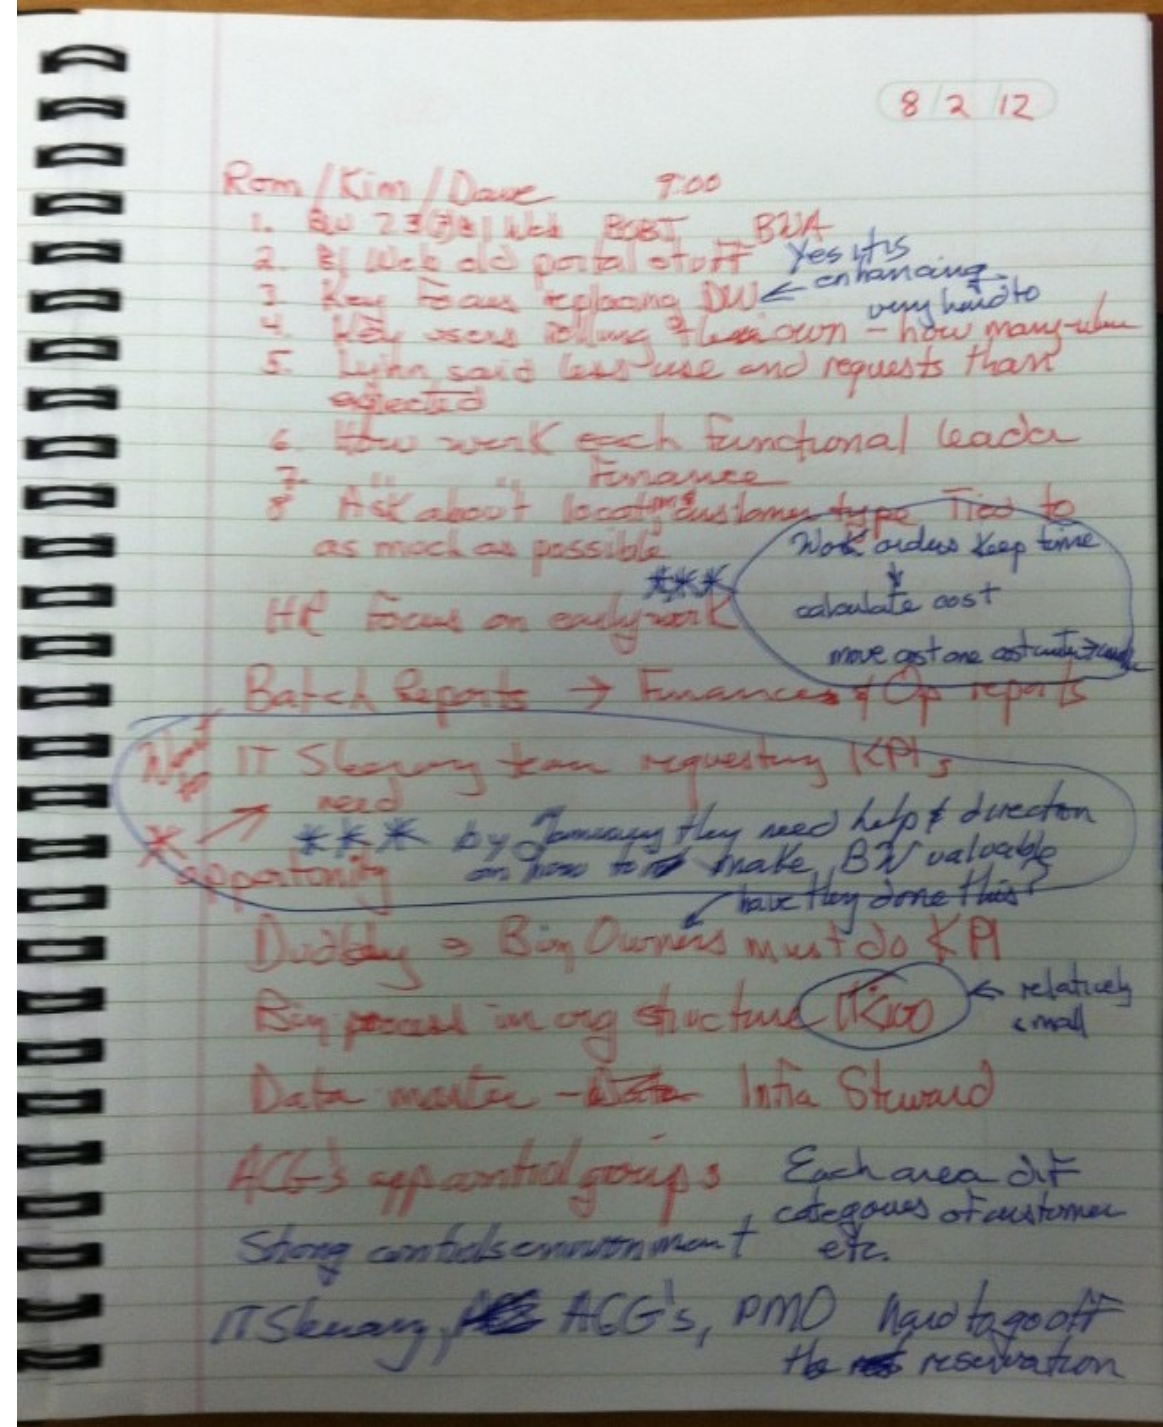 8/2/12
Rom/Kim/Dave 9:00
1. BW BOBJ BWA
2. BI Web old portal stuff Yes it is
enhancing
3. Key Focus replacing DW ←
very hard to
4. Key users rolling their own - how many
5. said less use and requests than
expected
6. How work each functional leader
7. " " Finance
8 Ask about customer type Tied to
as much as possible
Work orders keep time
↓
calculate cost
move cost one
***
HR Focus on early work
Batch Reports → Finance & Op reports
Want
to
IT Steering team requesting KPIs
need
* opportunity
*** by January they need help & direction
on how to make BW valuable
have they done this?
→ Biz Owners must do KPI
Biz process in org structure
← relatively
small
Data master - Infra Steward
ACG's app control groups
Each area dif
categories of customer
etc.
Strong controls environment
IT Steering, ACG's, PMO hard to go off
the reservation